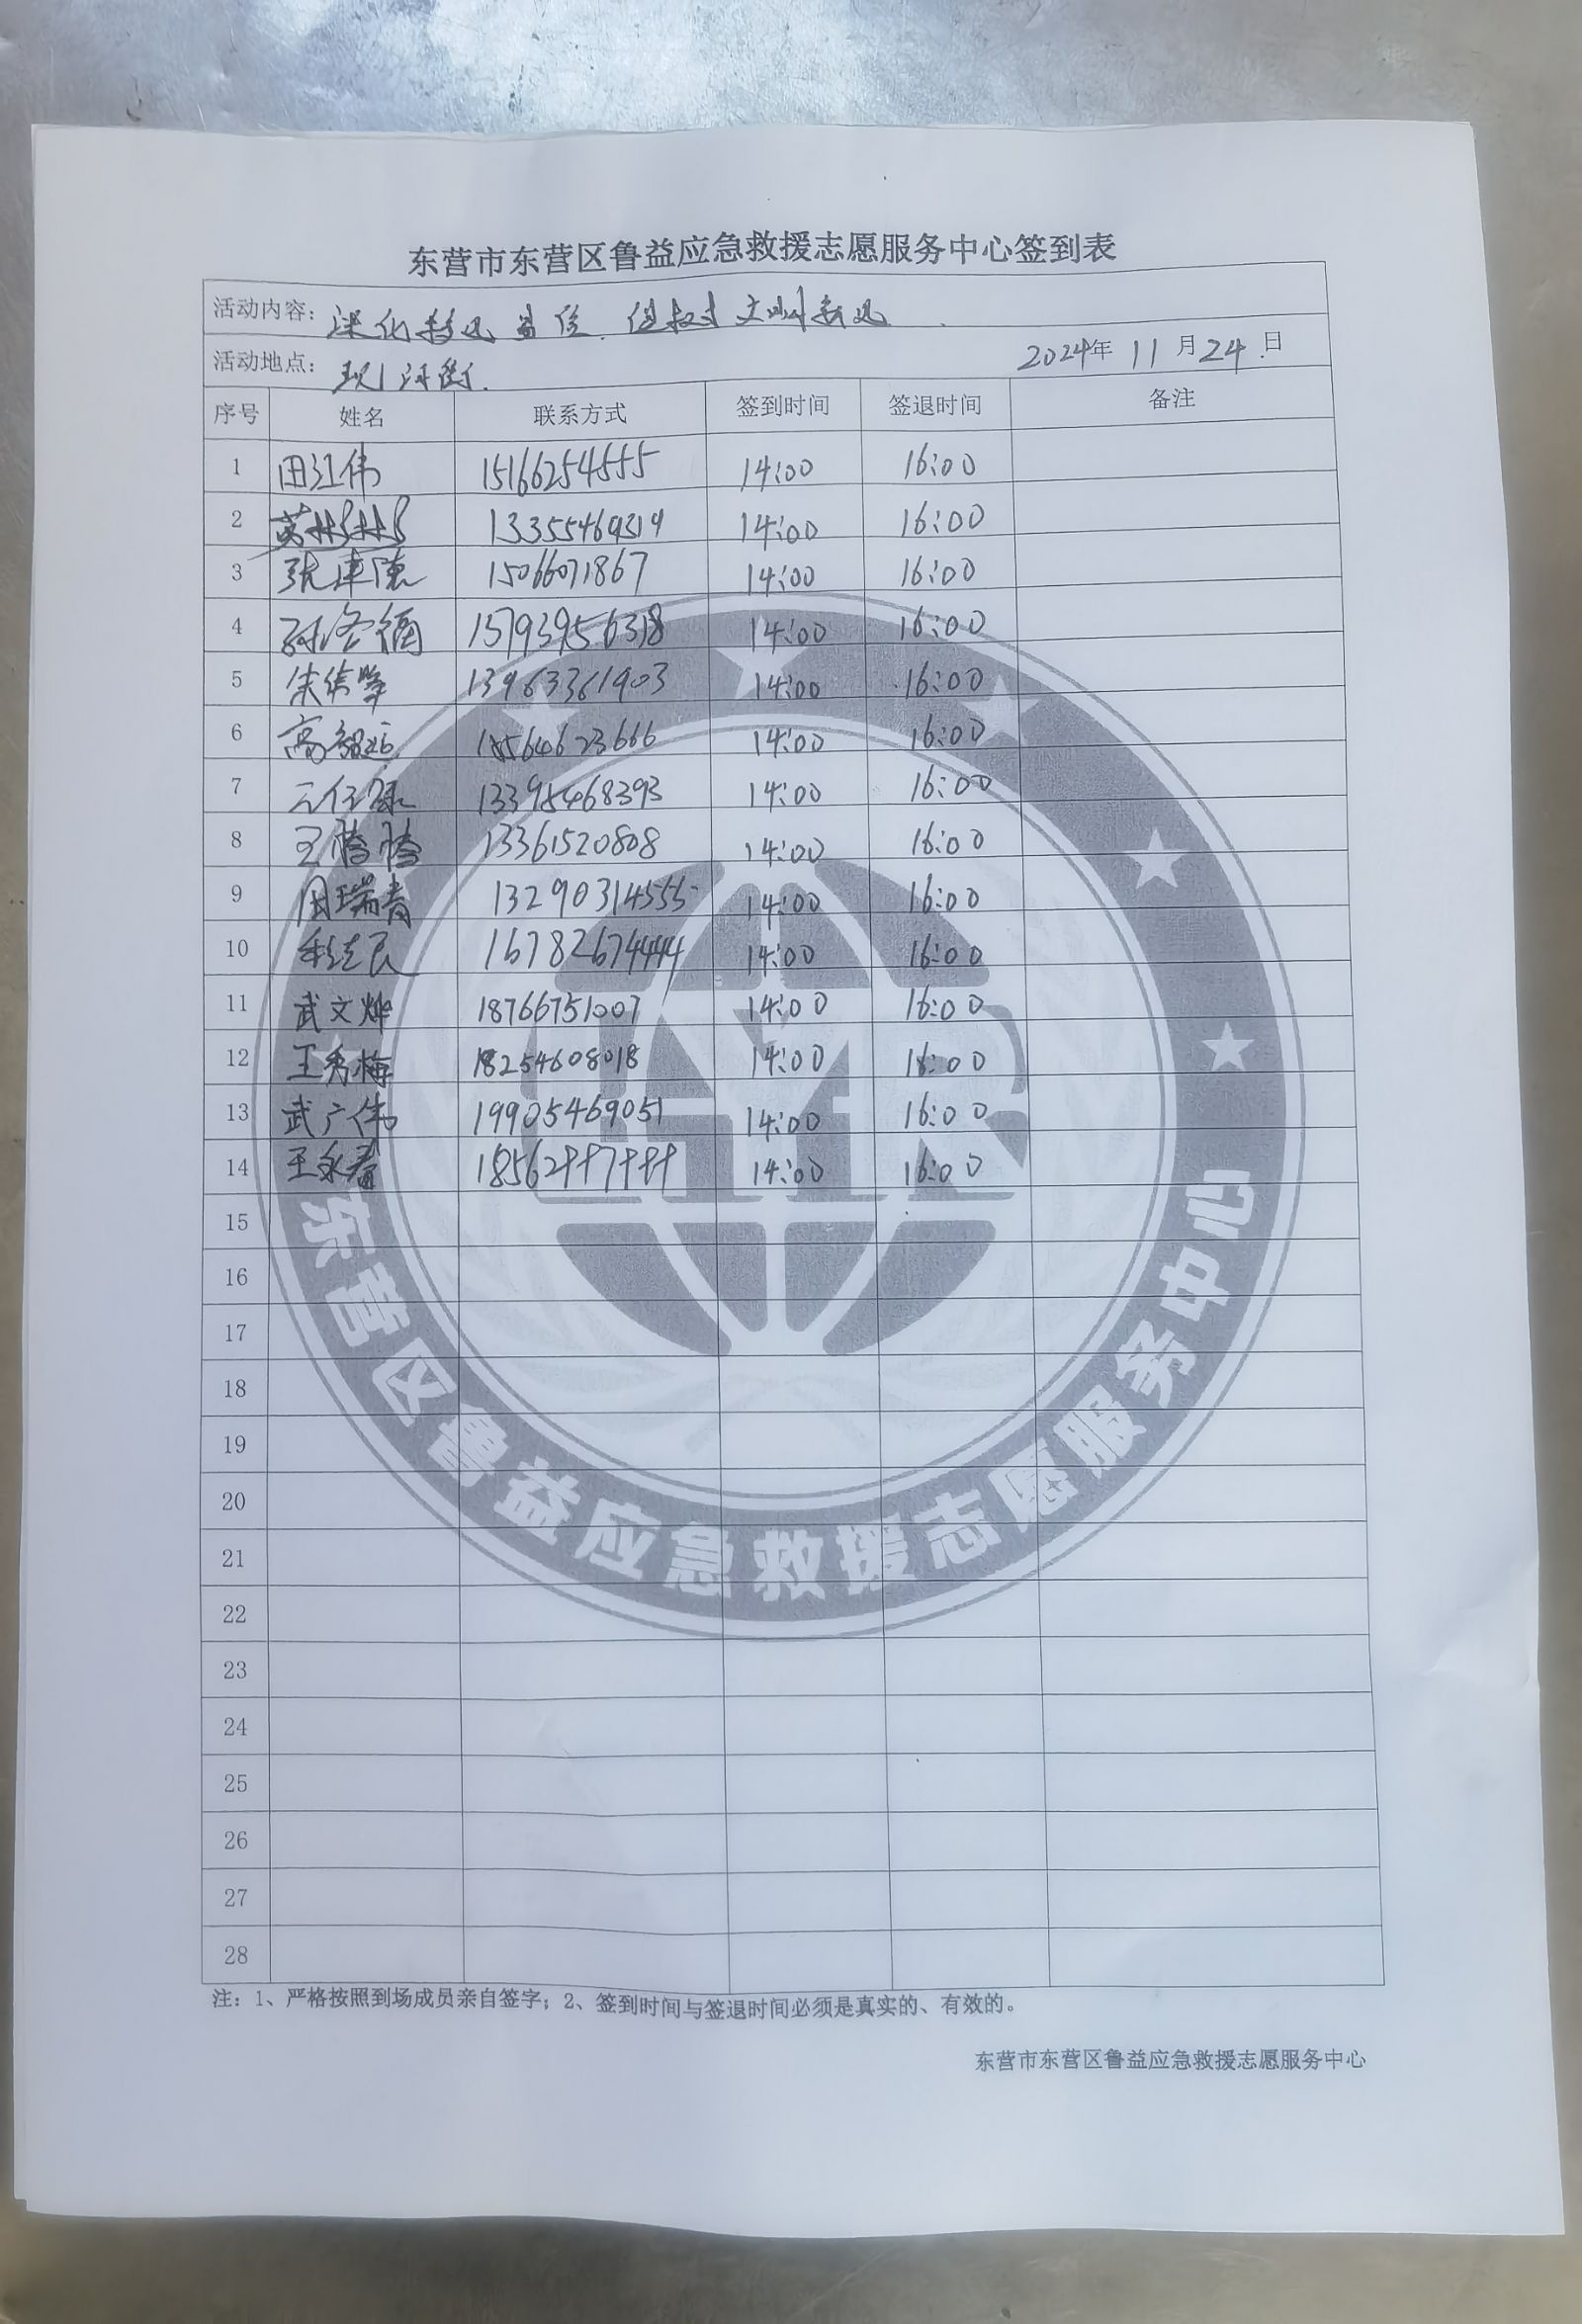 东营市东营区鲁益应急救援志愿服务中心签到表
活动内容：深化移风易俗 文明新风
活动地点： 2024年 11 月 24 日
序号 姓名 联系方式 签到时间 签退时间 备注
1 田江伟 15166254555 14:00 16:00
2 13355469319 14:00 16:00
3 张建德 15066071867 14:00 16:00
4 15793956318 14:00 16:00
5 13963361903 14:00 16:00
6 18564623666 14:00 16:00
7 13395468393 14:00 16:00
8 王腾腾 13361520808 14:00 16:00
9 田瑞青 13290314555 14:00 16:00
10 16782674444 14:00 16:00
11 武文烨 18766751007 14:00 16:00
12 王秀梅 18254608018 14:00 16:00
13 武广伟 19905469051 14:00 16:00
14 王永春 14:00 16:00
15
16
17
18
19
20
21
22
23
24
25
26
27
28
东营区鲁益应急救援志愿服务中心
注：1、严格按照到场成员亲自签字；2、签到时间与签退时间必须是真实的、有效的。
东营市东营区鲁益应急救援志愿服务中心